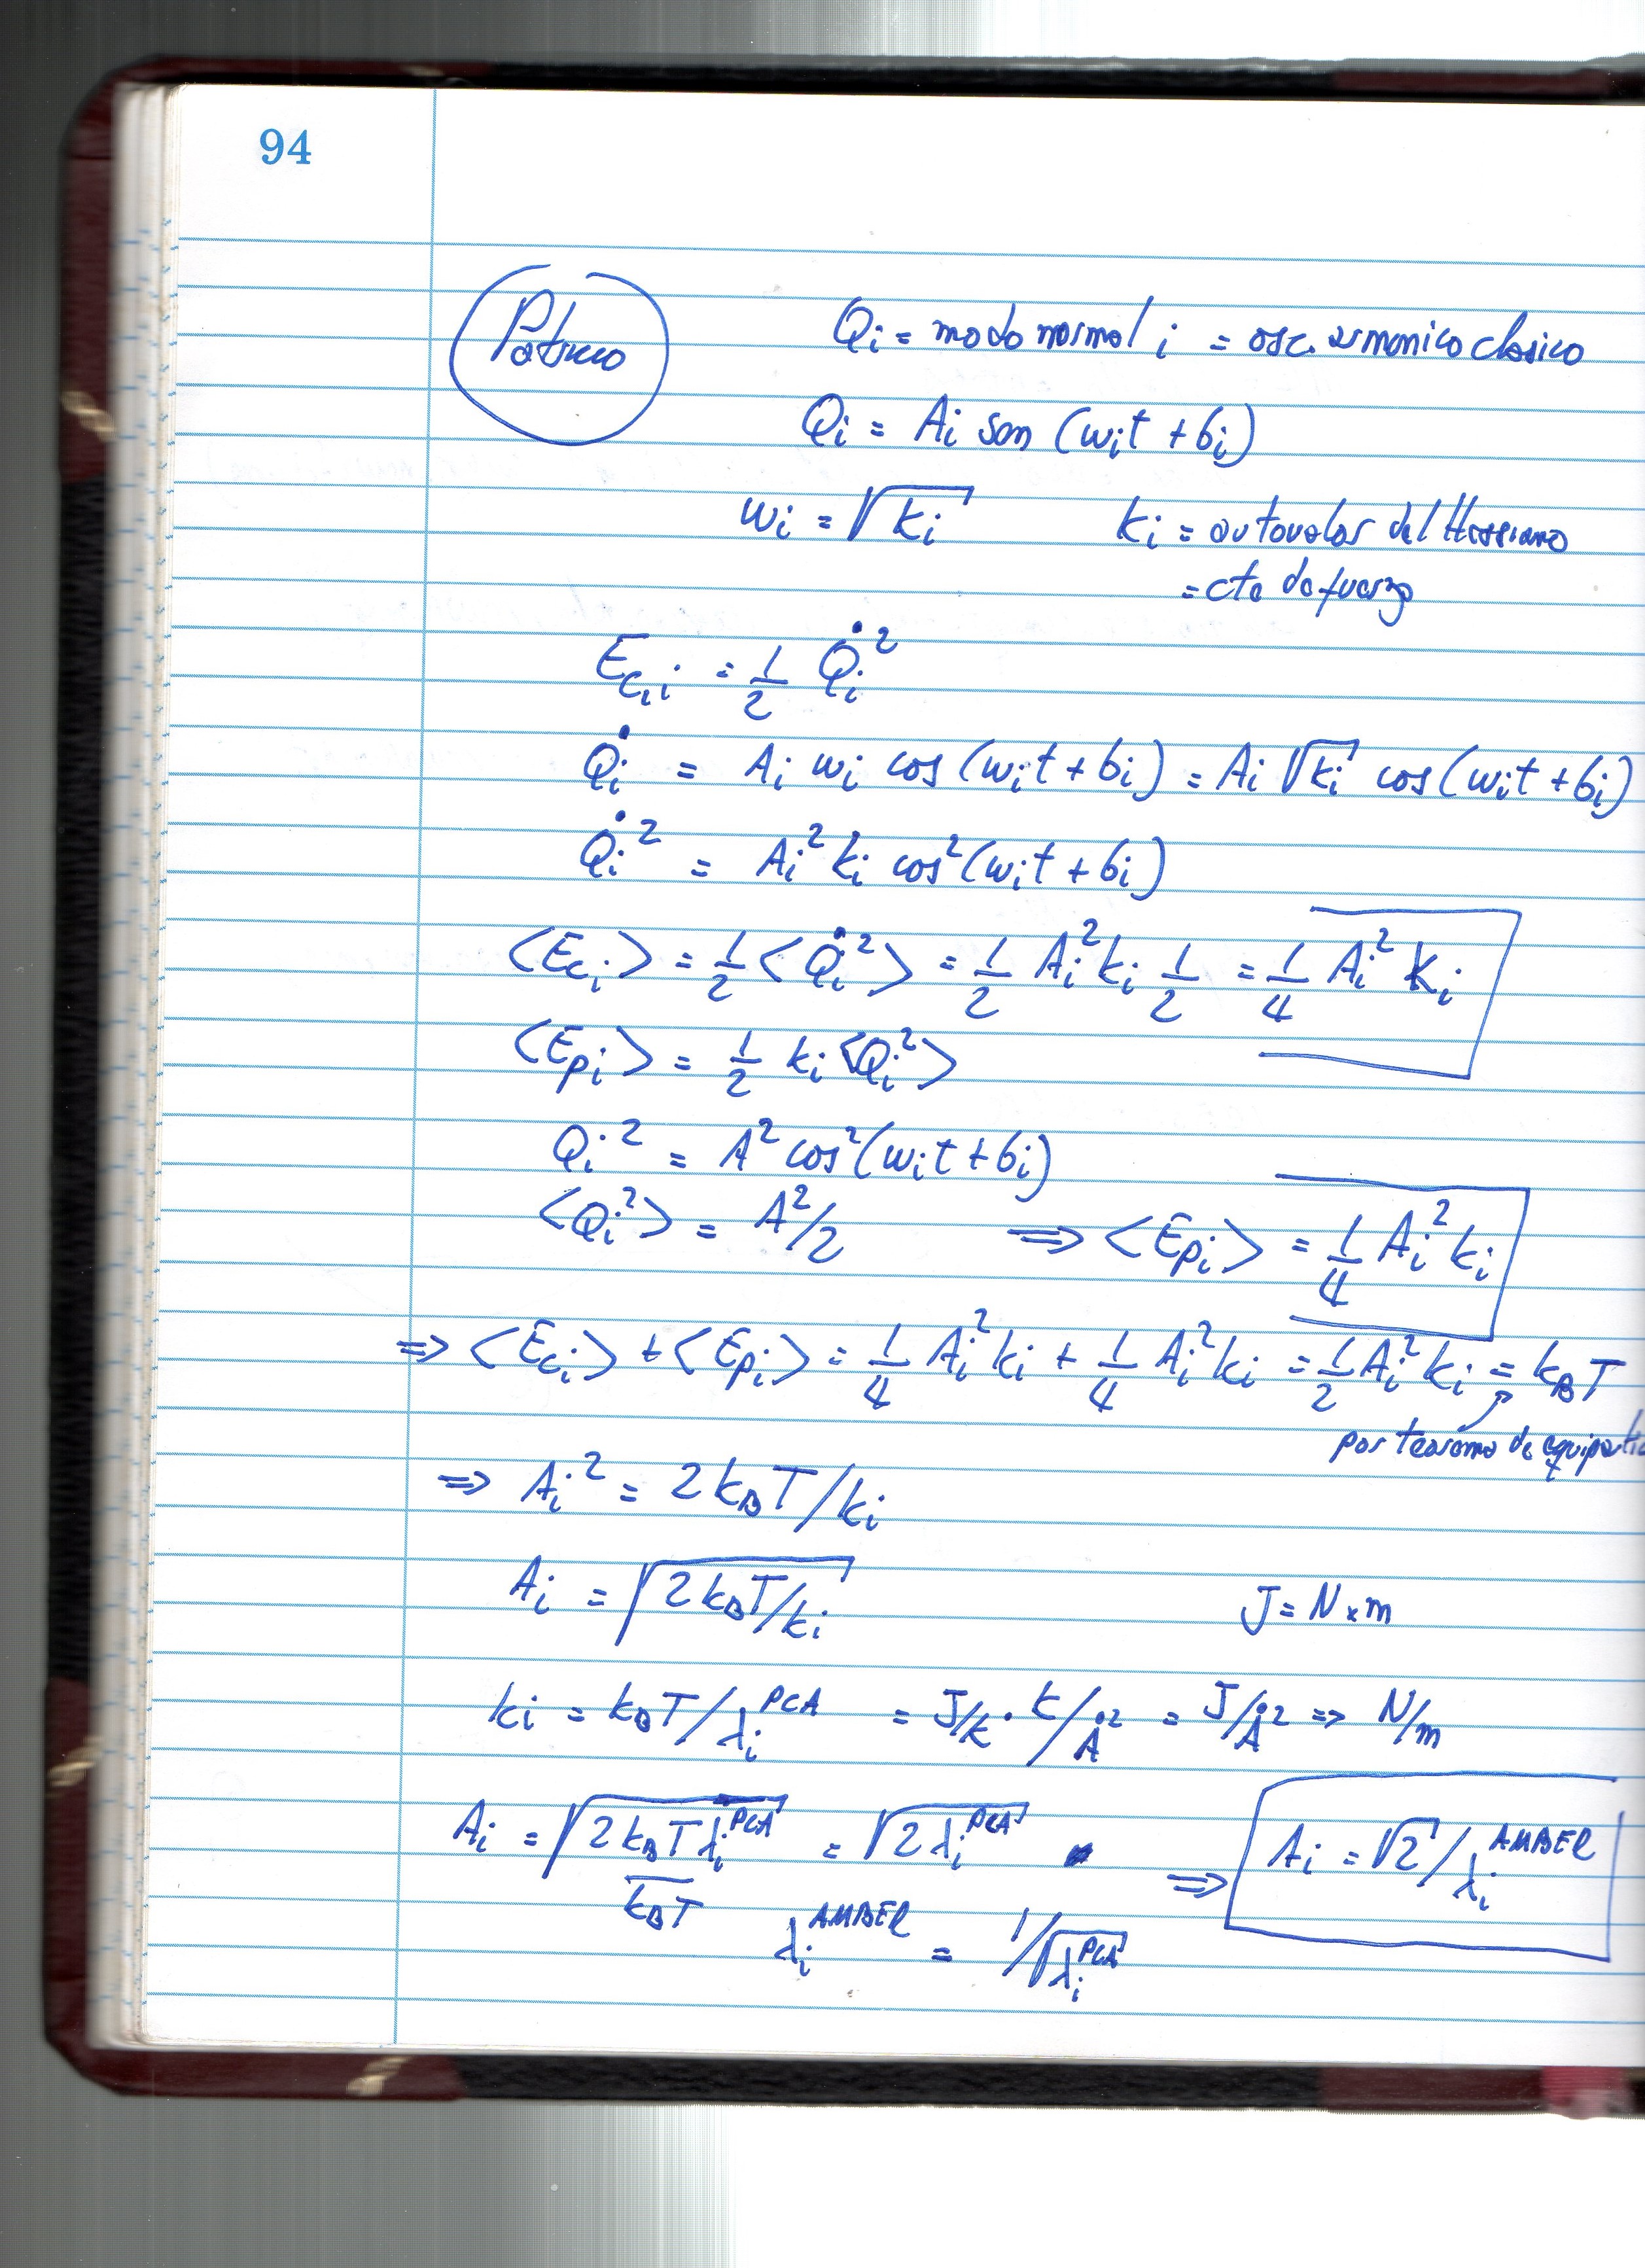 94
Qi = modo normal i = osc. armonico clasico
Qi = Ai sen (wit + bi)
wi = √ki ki = autovalor del Hessiano
= cte de fuerza
Ec,i = 1/2 Q̇i²
Q̇i = Ai wi cos (wit + bi) = Ai √ki cos (wit + bi)
Q̇i² = Ai² ki cos² (wit + bi)
<Eci> = 1/2 <Q̇i²> = 1/2 Ai² ki 1/2 = 1/4 Ai² Ki
<Epi> = 1/2 ki <Qi²>
Qi² = A² cos² (wit + bi)
<Qi²> = A²/2 ⇒ <Epi> = 1/4 Ai² ki
⇒ <Eci> + <Epi> = 1/4 Ai² ki + 1/4 Ai² ki = 1/2 Ai² ki = kBT
por teorema de
⇒ Ai² = 2 kBT/ki
Ai = √(2 kBT/ki) J = N x m
ki = kBT/λi^PCA = J/K · K/Å² = J/Å² ⇒ N/m
Ai = √(2 kBT λi^PCA / kBT) = √(2 λi^PCA) ⇒ Ai = √2 / λi^AMBER
λi^AMBER = 1/√(λi^PCA)